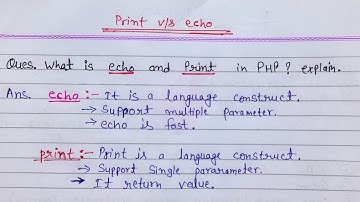 Print v/s echo
Ques. What is echo and Print in PHP? explain.
Ans. echo :- It is a language construct.
→ Support multiple parameter.
→ echo is fast.
print :- Print is a language construct.
→ Support Single pararameter.
→ It return value.